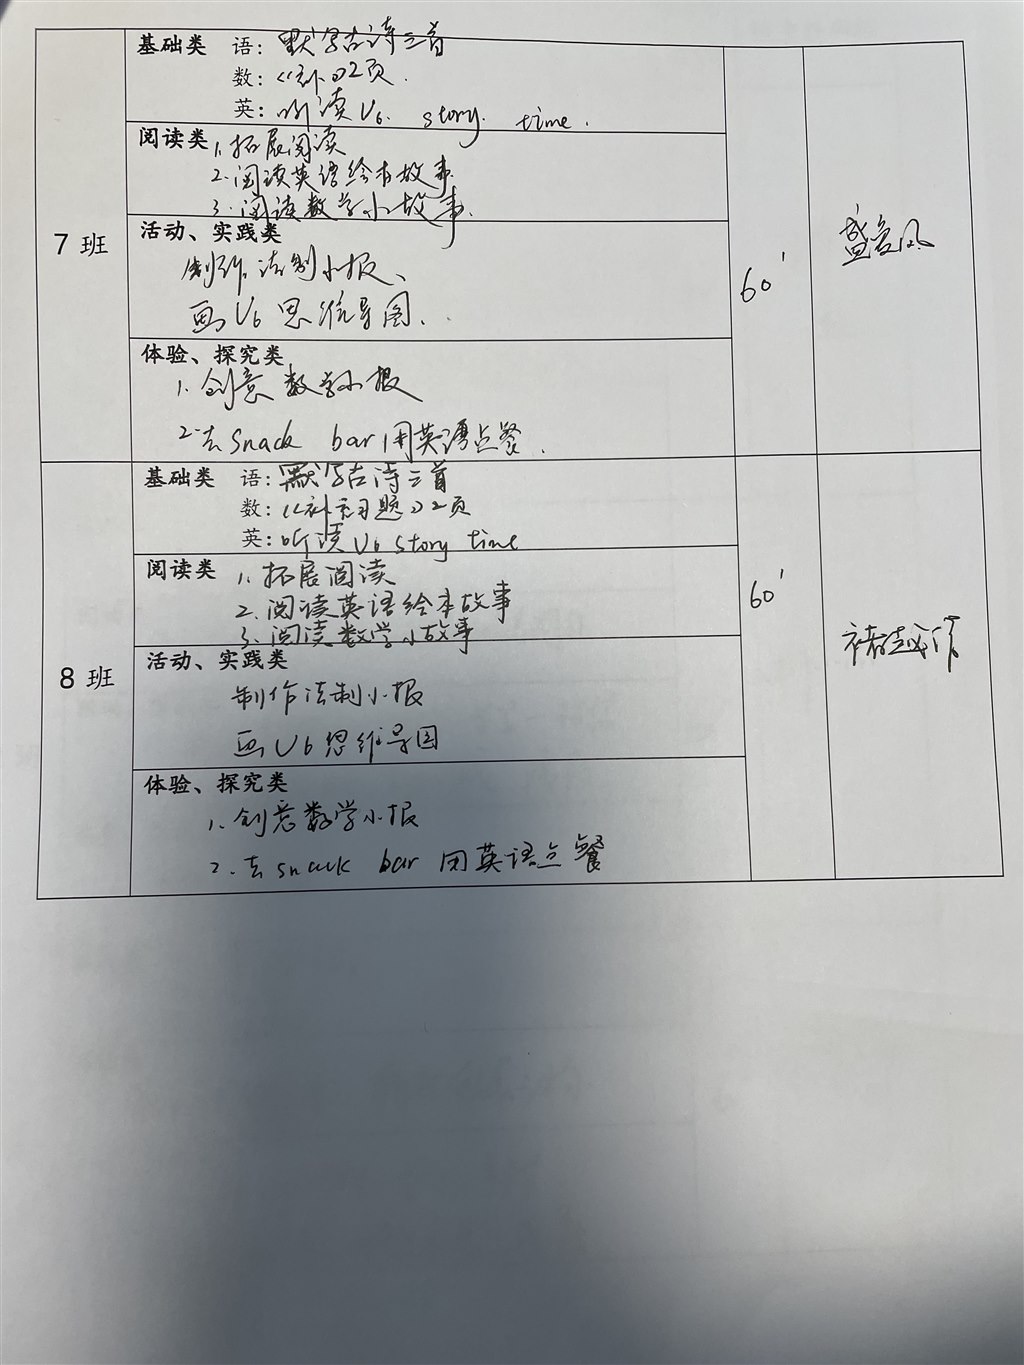 7 班
基础类 语: 默写古诗三首
数: 《补》2页.
英: 听读U6. story. time.
阅读类 1.拓展阅读
2.阅读英语绘本故事.
3.阅读数学小故事.
活动、实践类
制作法制小报、
画U6思维导图.
体验、探究类
1.创意数学小报
2.去snack bar用英语点餐.
60'
8 班
基础类 语: 默写古诗三首
数: 《补习题》2页
英: 听读U6 story time
阅读类 1.拓展阅读
2.阅读英语绘本故事
3.阅读数学小故事
活动、实践类
制作法制小报
画U6思维导图
体验、探究类
1.创意数学小报
2.去snack bar 用英语点餐
60'